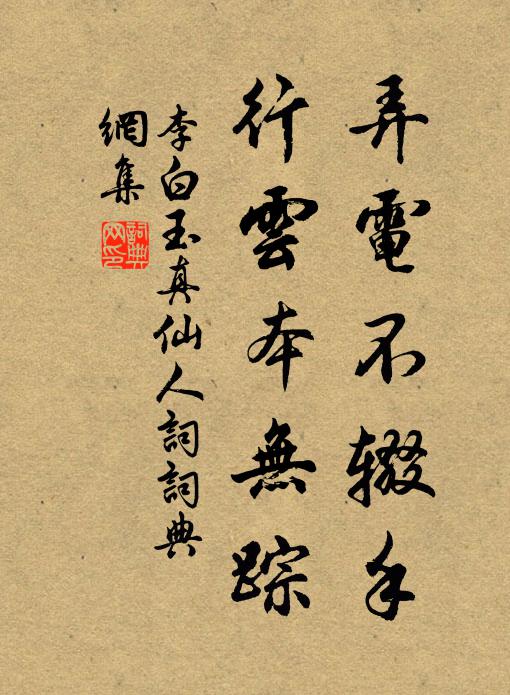 弄電不辍手
行雲本無踪
李白玉真仙人詞詞典
網集
詞典网印